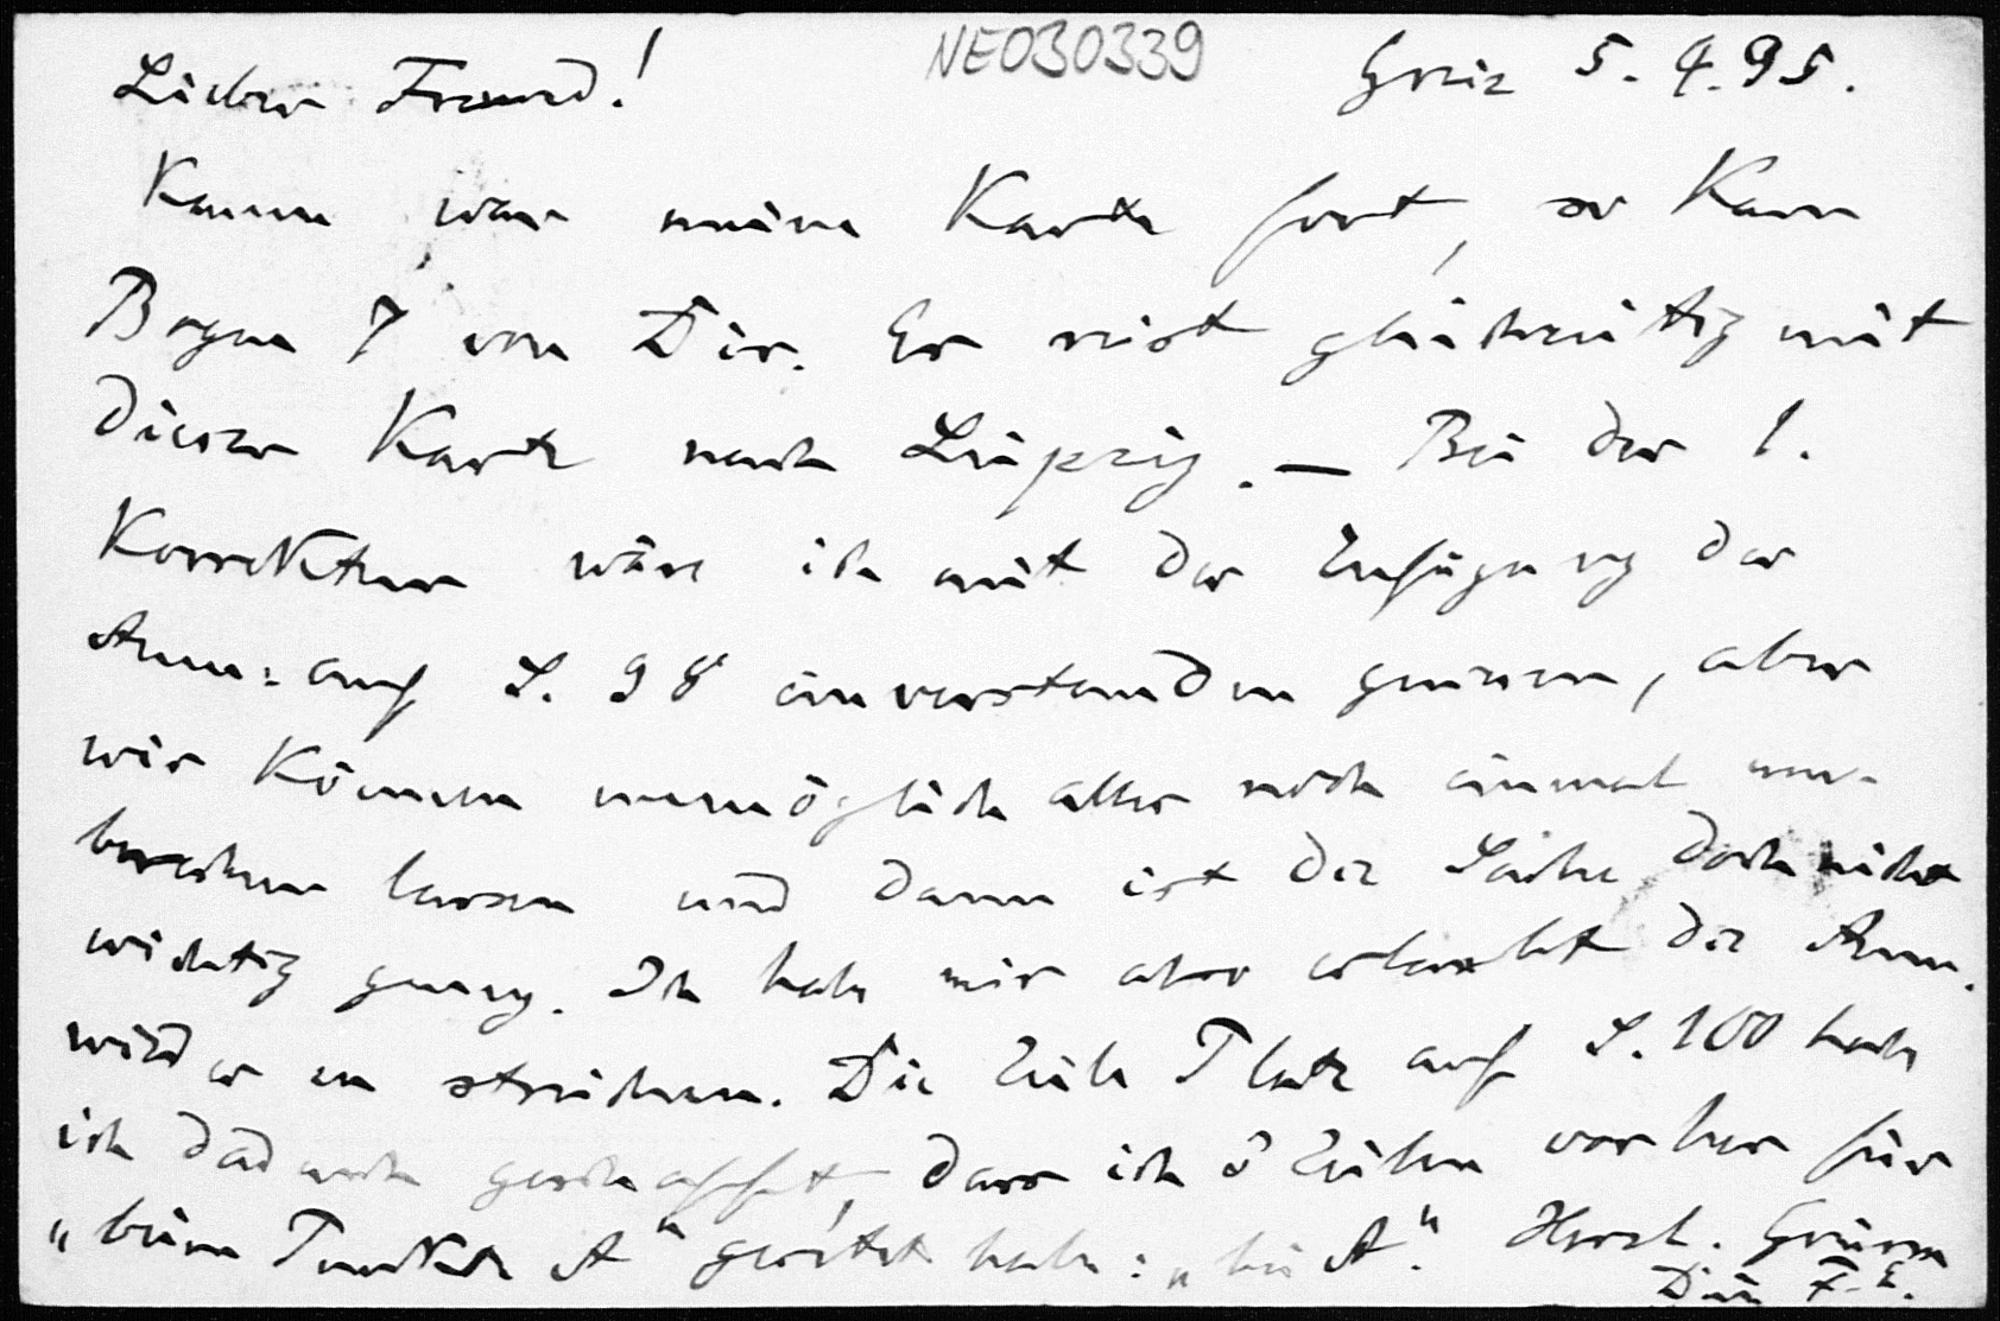 NE030339
Lieber Freund! Greiz 5.4.95.
Kaum war meine Karte fort, so kam
Bogen 7 von Dir. Er reist gleichzeitig mit
dieser Karte nach Leipzig. — Bei der 1.
Korrektur wäre ich mit der Einfügung der
Anm: auf S. 98 einverstanden gewesen, aber
wir können unmöglich alles noch einmal um-
brechen lassen und dann ist die Sache doch nicht
wichtig genug. Ich habe mir also erlaubt die Anm.
wieder zu streichen. Die Zeile Platz auf S. 100 habe
ich dadurch geschafft, dass ich 8 Zeilen vorher für
„beim Punkte A“ gesetzt habe: „bei A“. Herzl. Grüsse
Dein F. E.